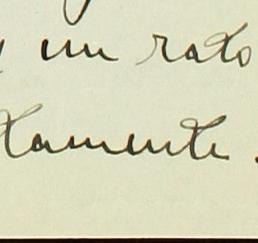 un rato
tamente.